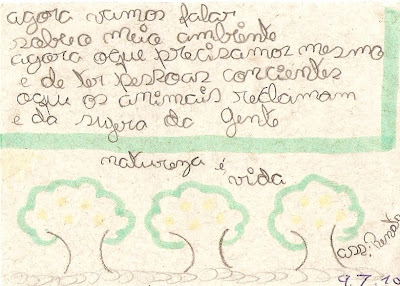 agora vamos falar
sobre o meio ambiente
agora oque precisamos mesmo
e de ter pessoas concientes
oque os animais reclamam
e da sujera da gente
natureza é
vida
ass: Renato
9.7.10